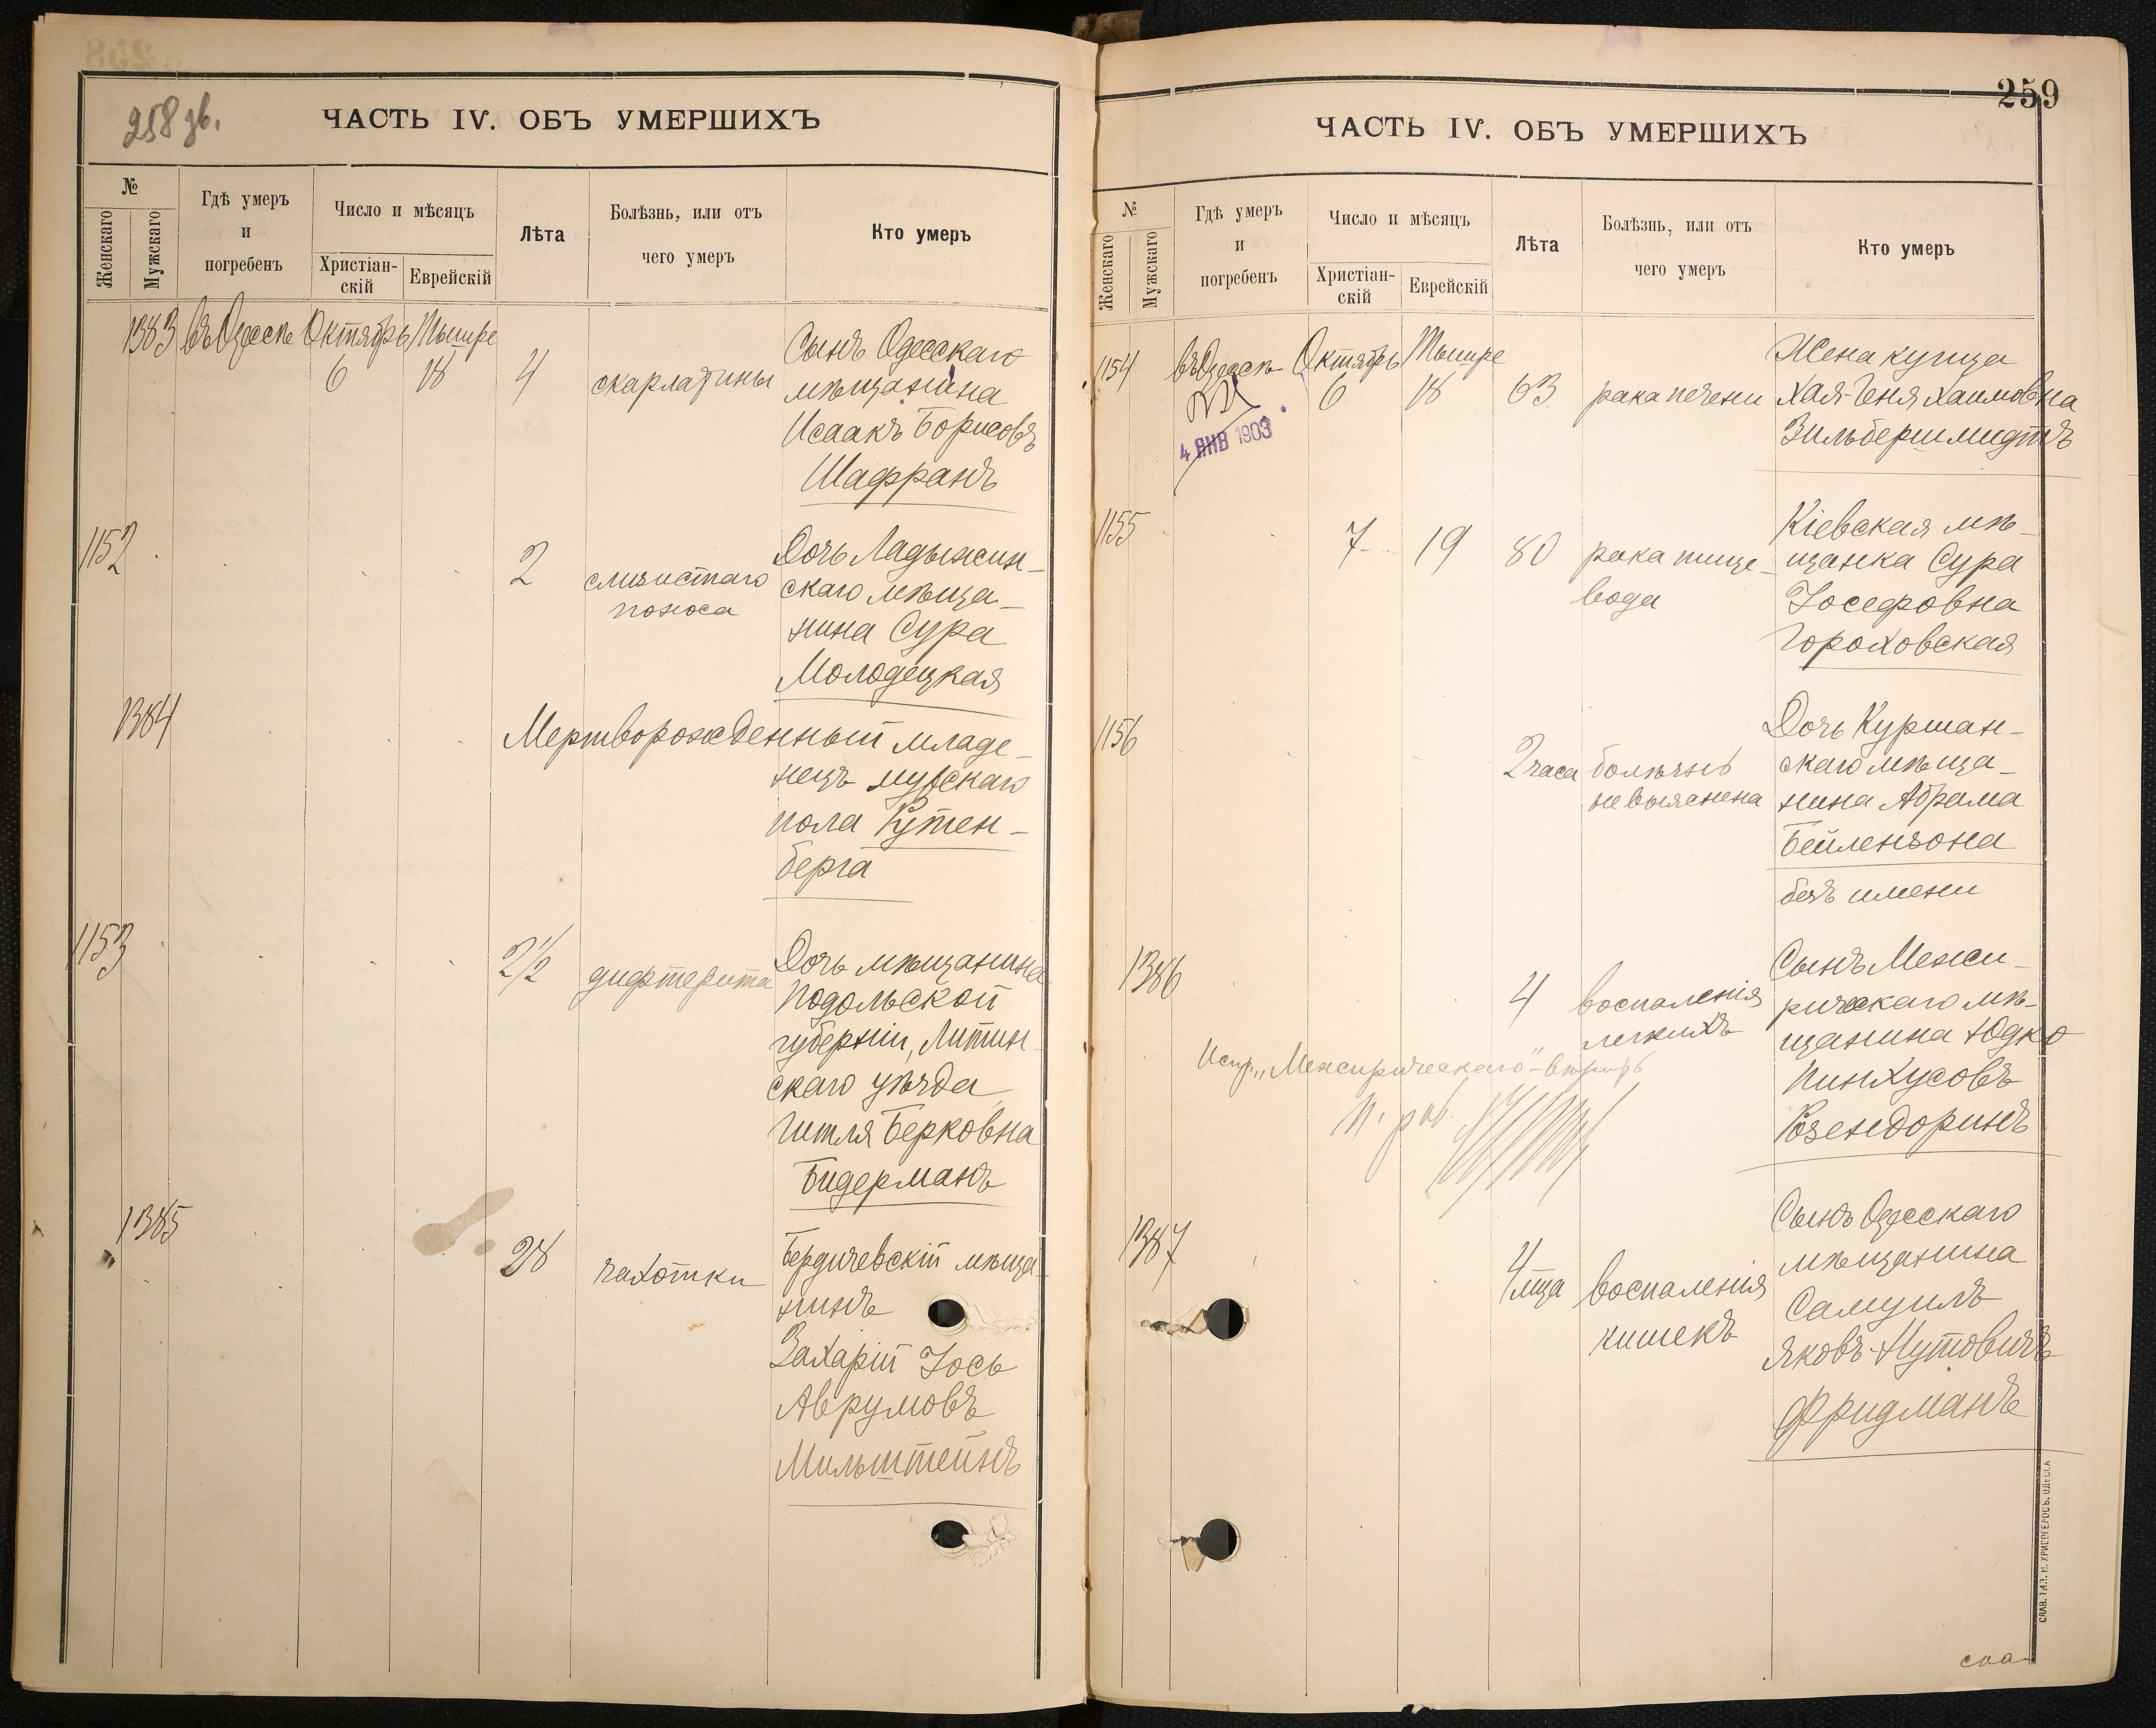 258 зв.
ЧАСТЬ IV. ОБЪ УМЕРШИХЪ
№
Женскаго
Мужскаго
Гдѣ умеръ
и
погребенъ
Число и мѣсяцъ
Христіан-
скій
Еврейскій
Лѣта
Болѣзнь, или отъ
чего умеръ
Кто умеръ
1383 въ Одессѣ Октябрь Тышре
6 18 4 скарлатины
Сынъ Одесскаго
мѣщанина
Исаакъ Борисовъ
Шафранъ
1152 2 слизистаго
поноса
Дочь Ладыжин-
скаго мѣща-
нина Сура
Молодецкая
1384
Мертворожденный младе-
нецъ мужскаго
пола Рутен-
берга
1153 2 1/2 дифтерита
Дочь мѣщанина
Подольской
губерніи, Литин-
скаго уѣзда
Гитля Берковна
Бидерманъ
1385 28 чахотки
Бердичевскій мѣща-
нинъ
Захарій Іось
Аврумовъ
Мильштейнъ
259
ЧАСТЬ IV. ОБЪ УМЕРШИХЪ
№
Женскаго
Мужскаго
Гдѣ умеръ
и
погребенъ
Число и мѣсяцъ
Христіан-
скій
Еврейскій
Лѣта
Болѣзнь, или отъ
чего умеръ
Кто умеръ
1154 въ Одессѣ Октябрь Тышре
6 18 63 рака печени
4 ЯНВ 1903
Жена купца
Хая-Геня Хаимовна
Зильбершмидтъ
1155 7 19 80 рака пище-
вода
Кіевская мѣ-
щанка Сура
Іосефовна
Гороховская
1156 2 часа болѣзнь
не выяснена
Дочь Куршан-
скаго мѣща-
нина Абрама
Бейлензона
безъ имени
1386 4 воспаленія
легкихъ
Сынъ Межи-
ричскаго мѣ-
щанина Юдко
Пинхусовъ
Розендоринъ
Испр. „Межиричскаго"- вѣрить
1387 4 м-ца воспаленія
кишекъ
Сынъ Одесскаго
мѣщанина
Самуилъ
Яковъ-Нутовичъ
Фридманъ
СЛАВ. ТИП. Н. ХРИСОГЕЛОСЪ. ОДЕССА